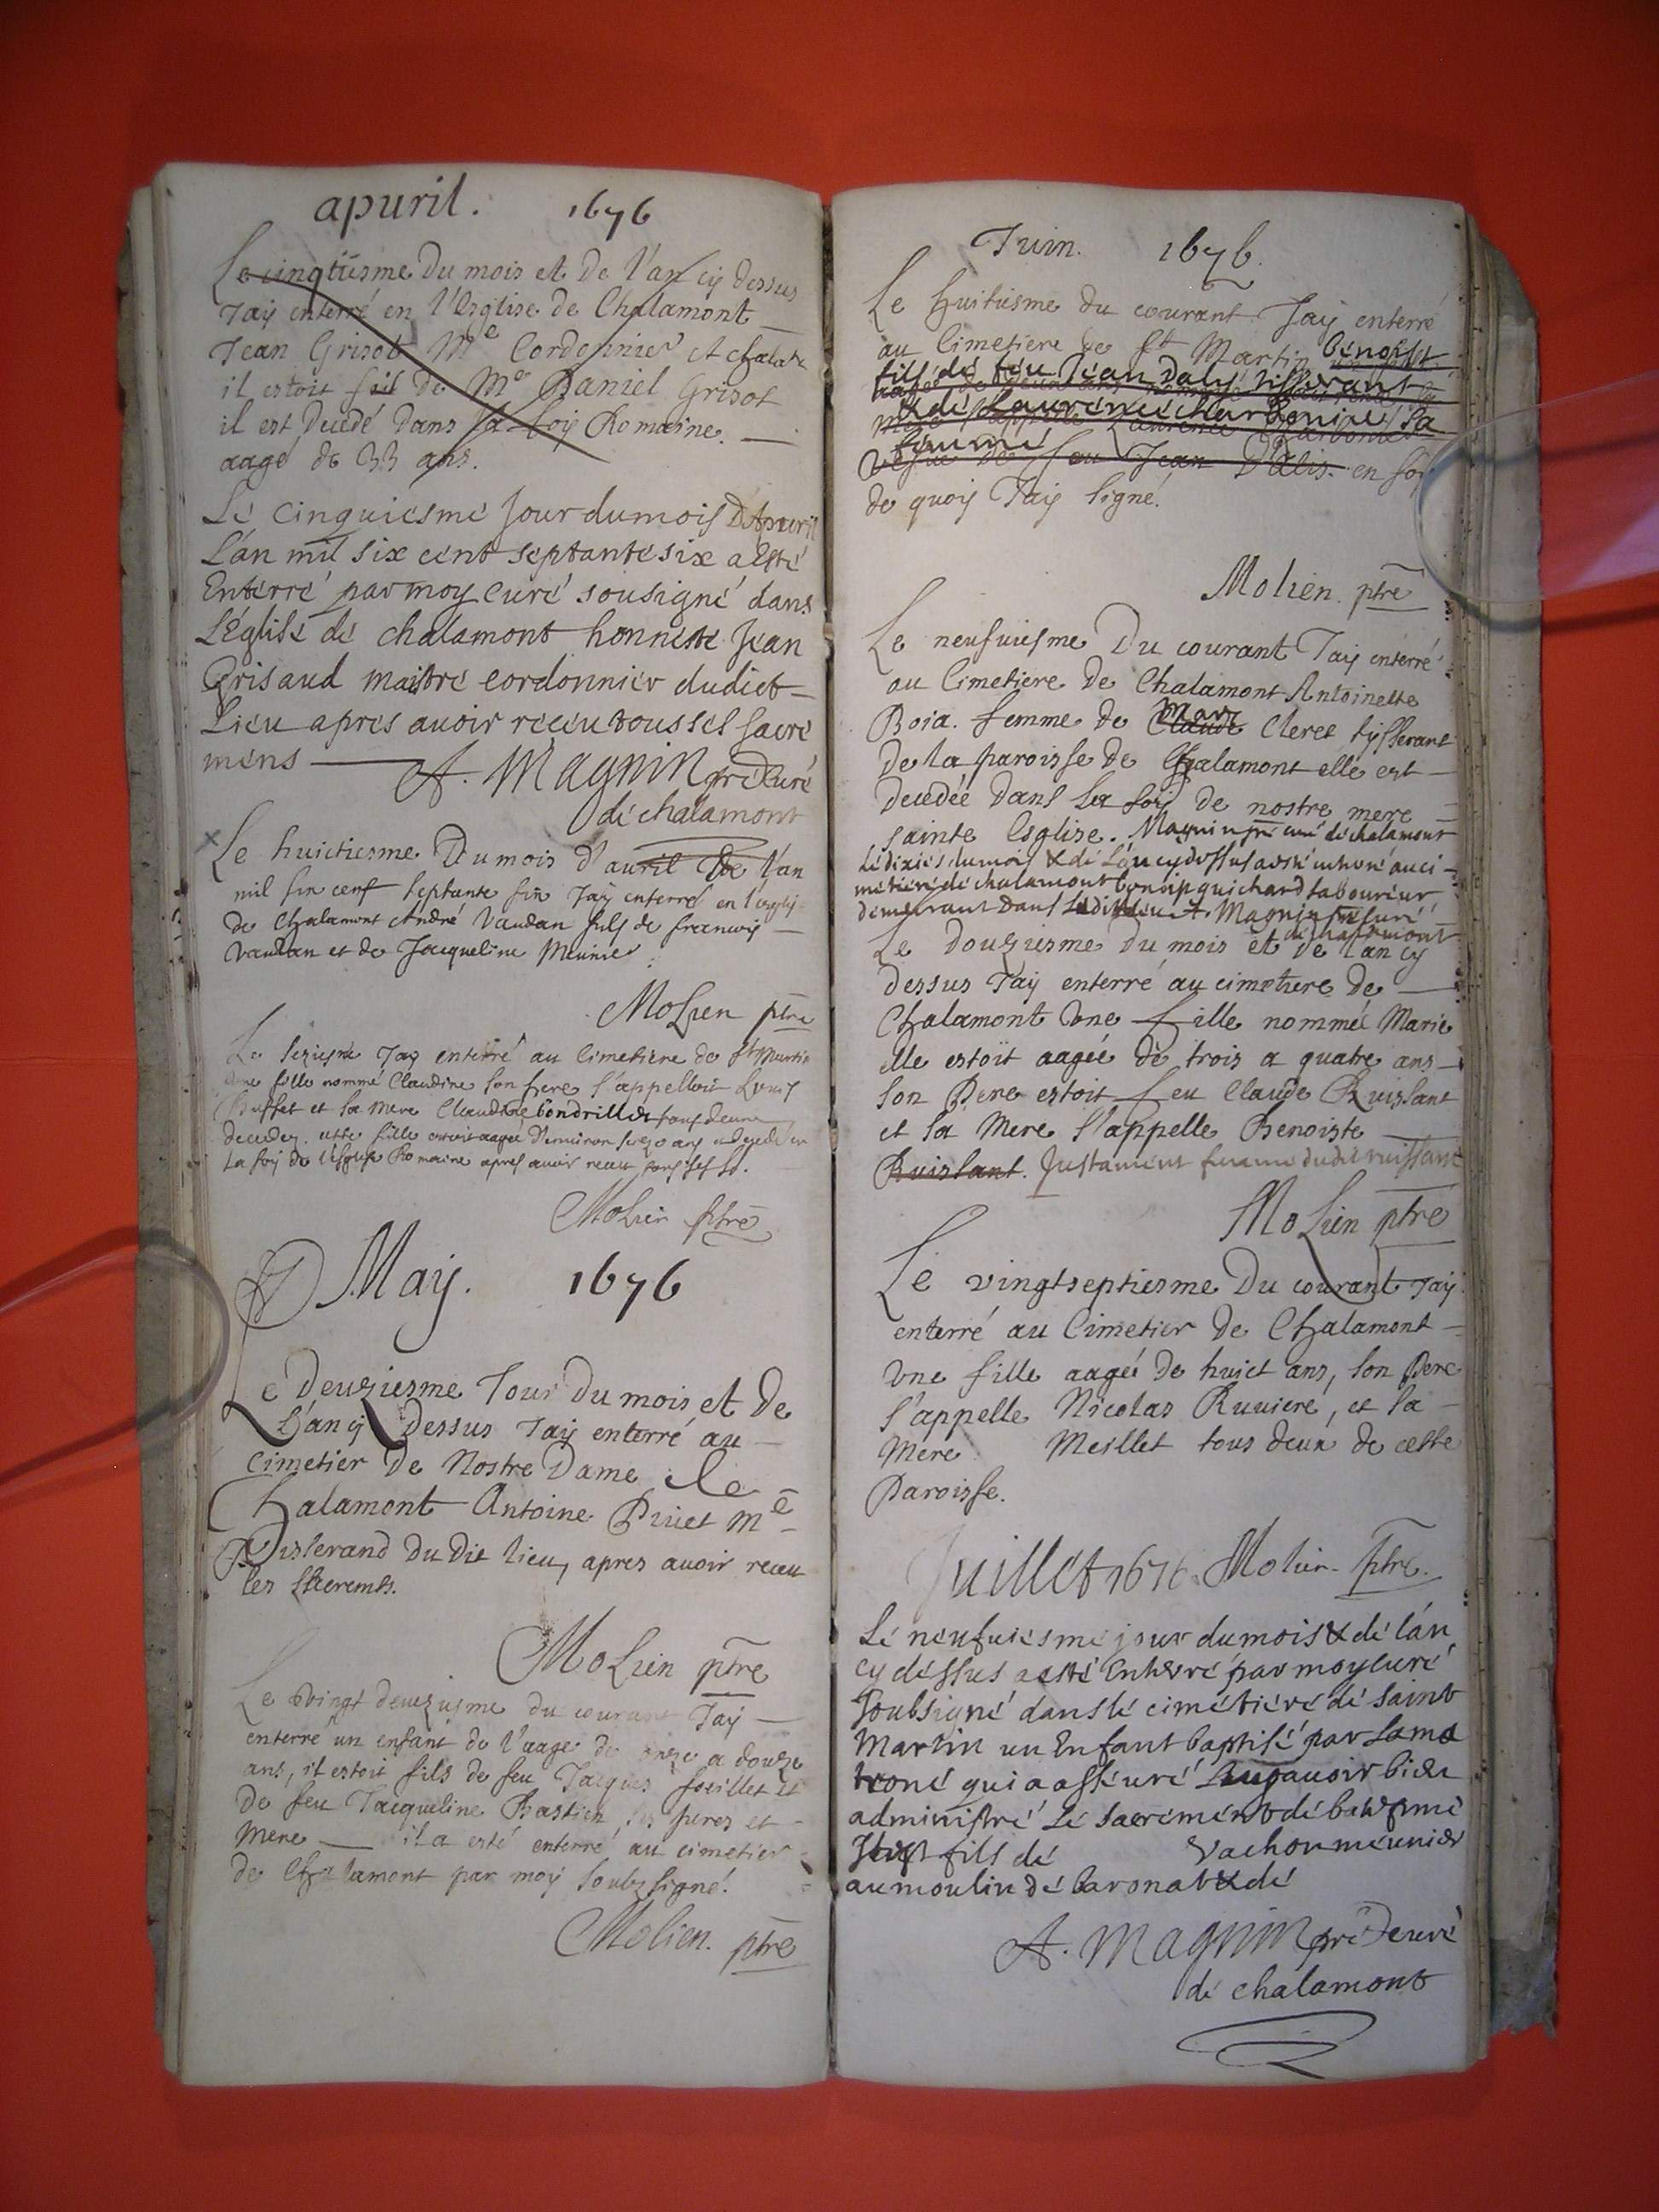 apuril. 1676
Le cinqiiesme Du mois et De l'an cy dessus
Jaÿ enterré en l'Esglise de Chalamont
Jean Grisot Me Cordonnier
il estoit fil De Me Daniel Grisot
il est Decedé Dans la foÿ Romaine.
aage de 33 ans.
Lé cinquiesmé Jour du mois D'Apuril
L'an mil six cent septante six a esté
Enterré par moy curé sousigné dans
L'Églisé dé chalamont honneste Jean
Grisaud maistré cordonnier dudict
Lieu apres auoir receu tous ses sacré
mens
A. Magnin pré Curé
dé chalamont
Le huictiesme Du mois d'auril De l'an
mil six cent septante six Jaÿ enterré en l'esglis
de Chalamont André Vaudan fils de francois
Vaudan et de Jacqueline Meunier
Molien ptre
Le seziesme Jaÿ enterré au Cimetiere de St Martin
une fille nommé Claudine son pere s'appelloit Louis
Buffet et sa mere Claudine bondrillet tous deux
decedez. cette fille estoit aagée D'enuiron seize ans
La foÿ de l'esglise Romaine apres auoir receu tous ses
Molien ptre
Maÿ. 1676
Le Deuziesme Jour Du mois et De
L'an cÿ Dessus Jaÿ enterré au
Cimetier De Nostre Dame de
Chalamont Antoine Priuet Me
Tisserand Du Dit lieu, apres auoir receu
les Sacremts.
Molien ptre
Le vingt deuziesme du courant Jaÿ
enterré un enfant de l'aage de onze a douze
ans, il estoit fils de feu Jacques foeillet et
De feu Jacqueline Bastien ses peres et
Mere il a esté enterré au cimetier
de Chalamont par moÿ soubz signé.
Molien. ptre
Juin. 1676.
Le huitiesme du courant Jaÿ enterré
au Cimetiere de St Martin bénoist
fils dé féu Jean Dalis tisserant
& dé Laurencé charbonniere sa
femmé
vefue De feu Jean D'alis. en foÿ
de quoÿ Jaÿ signé.
Molien. ptre
Le neufuiesme Du courant Jaÿ enterré
au Cimetiere De Chalamont Antoinette
Boia. femme de Claude Marc Cleret tysserant
De la paroisse de Chalamont elle est
Decedée Dans la foÿ de nostre mere
sainte Esglise. Magnin pré curé dé chalamont
Lé dixiés du mois & dé L'an cy dessus a esté inhumé au ci
metieré dé chalamont guichard labouréur
démeurant Dans Lédit lieu A. Magnin pré Curé
dé chalamont
Le Douziesme Du mois et De l'an cy
dessus Jaÿ enterré au cimetiere de
Chalamont Une fille nommée Marie
elle estoit aagée de trois a quatre ans
son Pere estoit feu Claude Ruissant
et sa Mere s'appelle Benoiste
Ruissant. Justament femme dudit ruissant
Molien ptre
Le vingtseptiesme Du courant Jaÿ
enterré au Cimetier De Chalamont
Une fille aagée De huict ans, son Pere
s'appelle Nicolas Ruuiere, et sa
Mere Meillet tous deux de cette
Paroisse.
Molien. ptre.
Juillét 1676
Lé neufuiesmé jour du mois & dé l'an
cy déssus a esté Enterré par moy curé
soubsigné dans lé cimétieré dé saint
Martin un Enfant baptisé par la ma
troné qui a asséuré Luy auoir bien
administré Lé sacrémént dé batesmé
Il est fils dé Vachon meunier
au moulin dé baronat & dé
A. Magnin pré & curé
dé chalamont